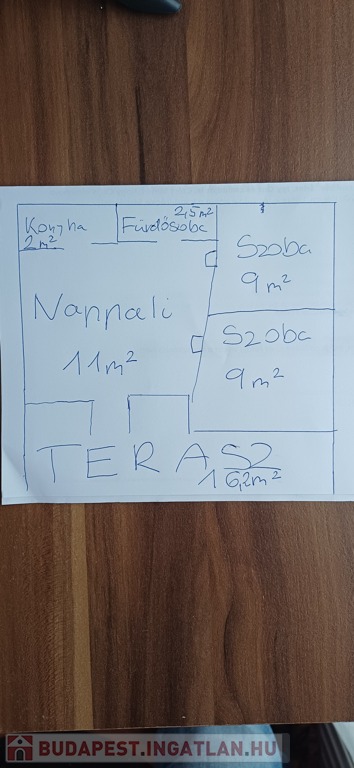 Konyha
2m²
2,5m²
Fürdőszoba
Szoba
9m²
Nappali
11m²
Szoba
9m²
TERASZ
16,2m²
BUDAPEST.INGATLAN.HU